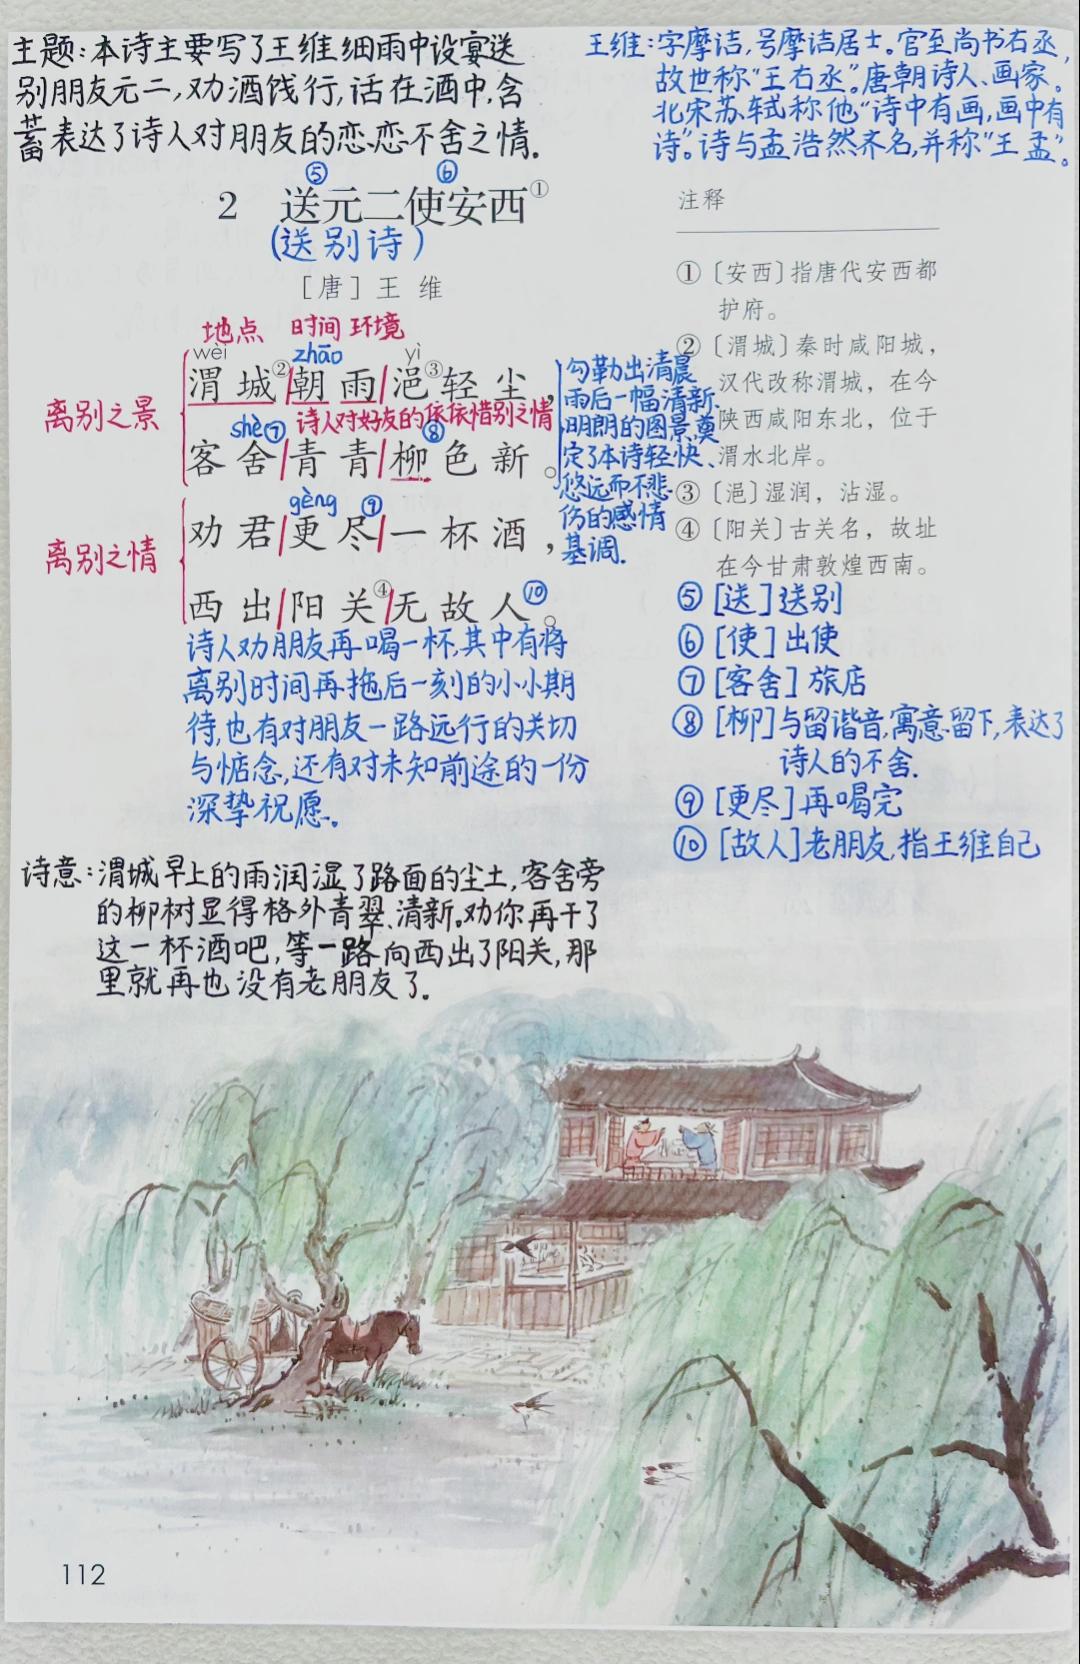 主题:本诗主要写了王维细雨中设宴送
别朋友元二,劝酒饯行,话在酒中,含
蓄表达了诗人对朋友的恋恋不舍之情.
王维:字摩诘,号摩诘居士。官至尚书右丞,
故世称“王右丞”。唐朝诗人、画家。
北宋苏轼称他“诗中有画,画中有
诗”。诗与孟浩然齐名,并称“王孟”。
⑤ ⑥
2 送元二使安西①
(送别诗)
[唐]王维
地点 时间 环境
wèi zhāo yì
离别之景
渭城②朝雨浥③轻尘,
诗人对好友的依依惜别之情
shè⑦ ⑧
客舍青青柳色新。
勾勒出清晨
雨后一幅清新、
明朗的图景,奠
定了本诗轻快、
悠远而不悲
伤的感情
基调.
离别之情
gèng ⑨
劝君更尽一杯酒,
西出阳关④无故人⑩。
诗人劝朋友再喝一杯,其中有将
离别时间再拖后一刻的小小期
待,也有对朋友一路远行的关切
与惦念,还有对未知前途的一份
深挚祝愿。
注释
①〔安西〕指唐代安西都
护府。
②〔渭城〕秦时咸阳城,
汉代改称渭城,在今
陕西咸阳东北,位于
渭水北岸。
③〔浥〕湿润,沾湿。
④〔阳关〕古关名,故址
在今甘肃敦煌西南。
⑤[送]送别
⑥[使]出使
⑦[客舍]旅店
⑧[柳]与留谐音,寓意留下,表达了
诗人的不舍.
⑨[更尽]再喝完
⑩[故人]老朋友,指王维自己
诗意:渭城早上的雨润湿了路面的尘土,客舍旁
的柳树显得格外青翠、清新。劝你再干了
这一杯酒吧,等一路向西出了阳关,那
里就再也没有老朋友了.
112